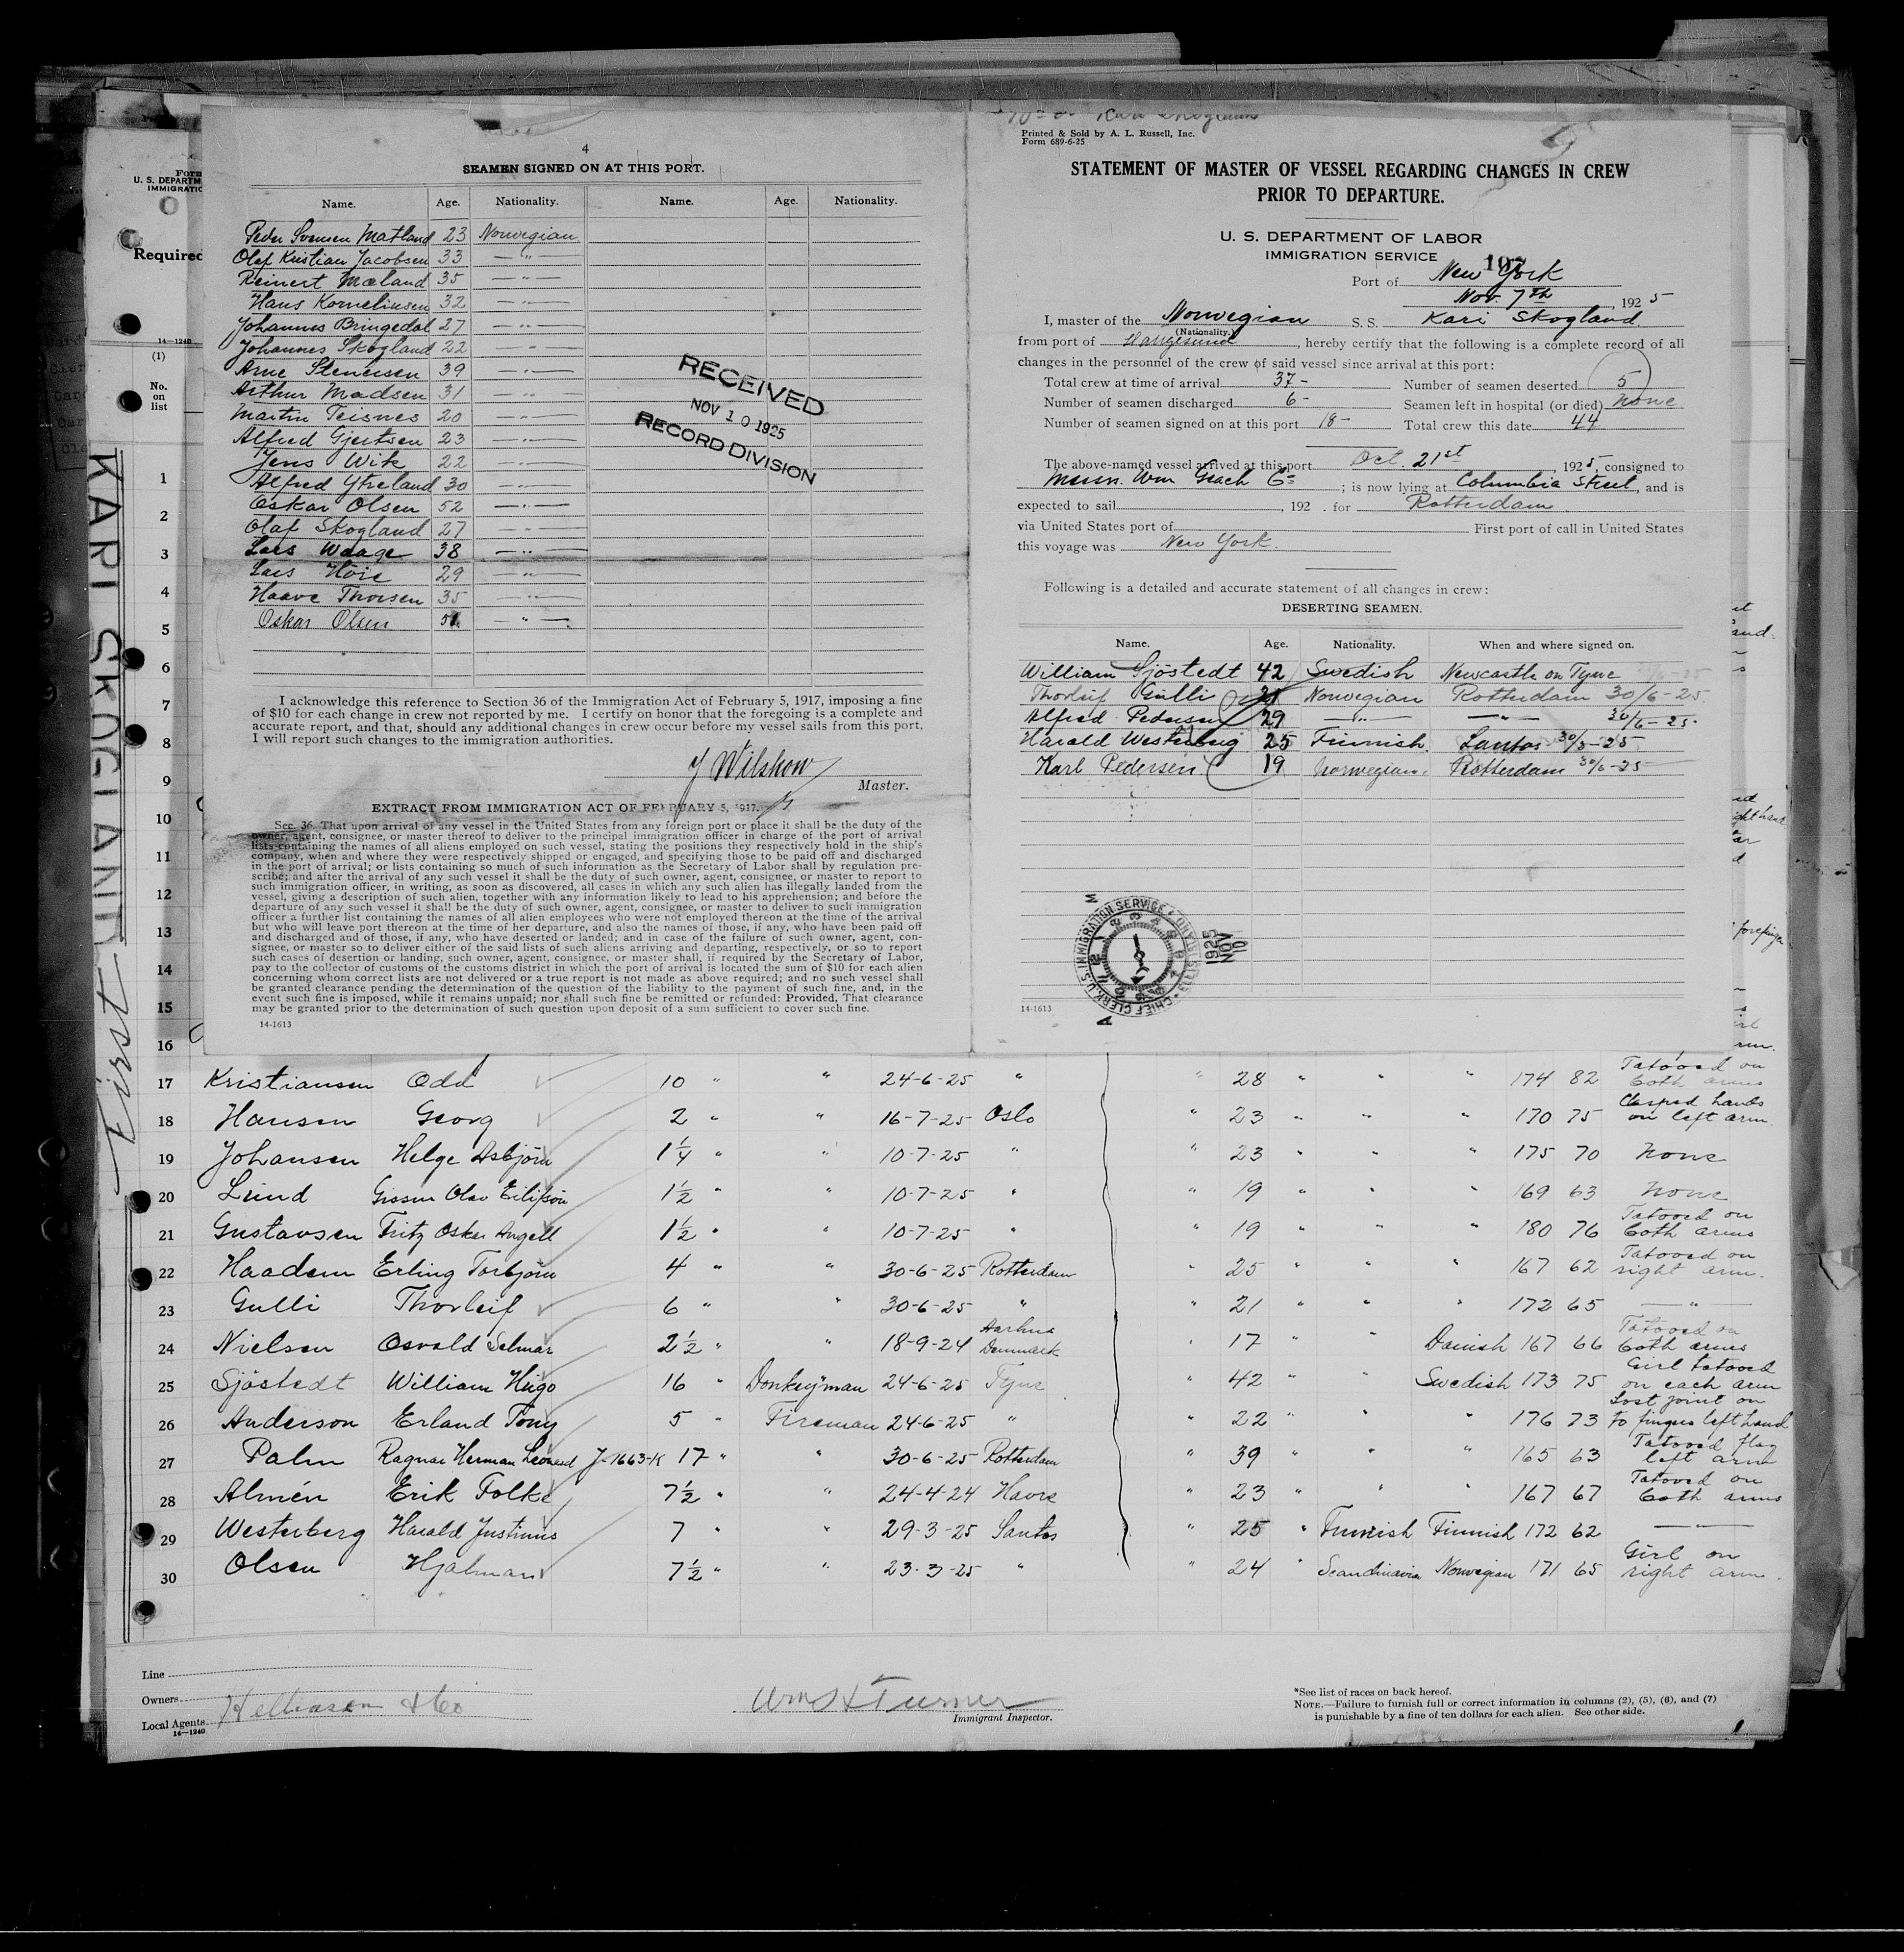 4
SEAMEN SIGNED ON AT THIS PORT.
Name. Age. Nationality. Name. Age. Nationality.
Peder Svensen Matland 23 Norwegian
Olaf Kristian Jacobsen 33 —"—
Reinert Mæland 35 —"—
Hans Korneliusen 32 —"—
Johannes Bringedal 27 —"—
Johannes Skogland 22 —"—
Arne Stenersen 39 —"—
Arthur Madsen 31 —"—
Martin Teisnes 20 —"—
Alfred Gjertsen 23 —"—
Jens Wik 22 —"—
Alfred Ytreland 30 —"—
Oskar Olsen 52 —"—
Olaf Skogland 27 —"—
Lars Waage 38 —"—
Lars Höie 29 —"—
Haave Thorsen 35 —"—
Oskar Olsen —"—
RECEIVED
NOV 10 1925
RECORD DIVISION
I acknowledge this reference to Section 36 of the Immigration Act of February 5, 1917, imposing a fine
of $10 for each change in crew not reported by me. I certify on honor that the foregoing is a complete and
accurate report, and that, should any additional changes in crew occur before my vessel sails from this port,
I will report such changes to the immigration authorities.
Master.
EXTRACT FROM IMMIGRATION ACT OF FEBRUARY 5, 1917.
Sec. 36. That upon arrival of any vessel in the United States from any foreign port or place it shall be the duty of the
owner, agent, consignee, or master thereof to deliver to the principal immigration officer in charge of the port of arrival
lists containing the names of all aliens employed on such vessel, stating the positions they respectively hold in the ship's
company, when and where they were respectively shipped or engaged, and specifying those to be paid off and discharged
in the port of arrival; or lists containing so much of such information as the Secretary of Labor shall by regulation pre-
scribe; and after the arrival of any such vessel it shall be the duty of such owner, agent, consignee, or master to report to
such immigration officer, in writing, as soon as discovered, all cases in which any such alien has illegally landed from the
vessel, giving a description of such alien, together with any information likely to lead to his apprehension; and before the
departure of any such vessel it shall be the duty of such owner, agent, consignee, or master to deliver to such immigration
officer a further list containing the names of all alien employees who were not employed thereon at the time of the arrival
but who will leave port thereon at the time of her departure, and also the names of those, if any, who have been paid off
and discharged and of those, if any, who have deserted or landed; and in case of the failure of such owner, agent, con-
signee, or master so to deliver either of the said lists of such aliens arriving and departing, respectively, or so to report
such cases of desertion or landing, such owner, agent, consignee, or master shall, if required by the Secretary of Labor,
pay to the collector of customs of the customs district in which the port of arrival is located the sum of $10 for each alien
concerning whom correct lists are not delivered or a true report is not made as above required; and no such vessel shall
be granted clearance pending the determination of the question of the liability to the payment of such fine, and, in the
event such fine is imposed, while it remains unpaid; nor shall such fine be remitted or refunded: Provided, That clearance
may be granted prior to the determination of such question upon deposit of a sum sufficient to cover such fine.
14-1613
Printed & Sold by A. L. Russell, Inc.
Form 689-6-25
STATEMENT OF MASTER OF VESSEL REGARDING CHANGES IN CREW
PRIOR TO DEPARTURE.
U. S. DEPARTMENT OF LABOR
IMMIGRATION SERVICE
Port of New York
Nov. 7th, 1925
I, master of the Norwegian S. S. Kari Skogland
(Nationality.)
from port of Haugesund, hereby certify that the following is a complete record of all
changes in the personnel of the crew of said vessel since arrival at this port:
Total crew at time of arrival 37- Number of seamen deserted 5
Number of seamen discharged 6- Seamen left in hospital (or died) None
Number of seamen signed on at this port 18- Total crew this date 44
The above-named vessel arrived at this port Oct. 21st, 1925, consigned to
Messrs. Wm Geach Co; is now lying at Columbia Street, and is
expected to sail, 192 . for Rotterdam
via United States port of First port of call in United States
this voyage was New York.
Following is a detailed and accurate statement of all changes in crew:
DESERTING SEAMEN.
Name. Age. Nationality. When and where signed on.
William Sjöstedt 42 Swedish Newcastle on Tyne
Thorleif Gulli 21 Norwegian Rotterdam 30/6-25
Alfred Pedersen 29 —"— —"— 30/6-25
Harald Westerberg 25 Finnish. Santos 30/3-25
Karl Pedersen 19 Norwegian. Rotterdam 30/6-25
CHIEF CLERK U.S. IMMIGRATION SERVICE
1925
NOV
10
14-1613
Form
U. S. DEPARTM
IMMIGRATIO
Required
14—1240
(1)
No.
on
list
KARI SKOGLAND
First
1
2
3
4
5
6
7
8
9
10
11
12
13
14
15
16
17 Kristiansen Odd 10 " " 24-6-25 " " 28 " " " 174 82 Tatooed on both arms
18 Hansen Georg 2 " " 16-7-25 Oslo " 23 " " " 170 75 Clasped hands on left arm
19 Johansen Helge Asbjörn 1¼ " " 10-7-25 " " 23 " " " 175 70 None
20 Lund Gissur Olav Eilifson 1½ " " 10-7-25 " " 19 " " " 169 63 None
21 Gustavsen Fritz Oskar Angell 1½ " " 10-7-25 " " 19 " " " 180 76 Tatooed on both arms
22 Haadem Erling Torbjörn 4 " " 30-6-25 Rotterdam " 25 " " " 167 62 Tatooed on right arm.
23 Gulli Thorleif 6 " " 30-6-25 " " 21 " " " 172 65 —"—
24 Nielsen Osvald Selmar 2½ " " 18-9-24 Aarhus Denmark " 17 " " Danish 167 66 Tatooed on both arms
25 Sjöstedt William Hugo 16 " Donkeyman 24-6-25 Tyne " 42 " " Swedish 173 75 Girl tatooed on each arm
26 Anderson Erland Tony 5 " Fireman 24-6-25 " " 22 " " " 176 73 Lost joint on to fingers left hand
27 Palm Ragnar Herman Leonard J-1663-K 17 " " 30-6-25 Rotterdam " 39 " " " 165 63 Tatooed flag left arm
28 Almén Erik Folke 7½ " " 24-4-24 Havre " 23 " " " 167 67 Tatooed on both arms
29 Westerberg Harald Justinus 7 " " 29-3-25 Santos " 25 " Finnish Finnish 172 62 —"—
30 Olsen Hjalmar 7½ " " 23-3-25 " " 24 " Scandinavia Norwegian 171 65 Girl on right arm.
Line
Owners
Local Agents
14—1240
Wm H Turner
Immigrant Inspector.
*See list of races on back hereof.
NOTE.—Failure to furnish full or correct information in columns (2), (5), (6), and (7)
is punishable by a fine of ten dollars for each alien. See other side.